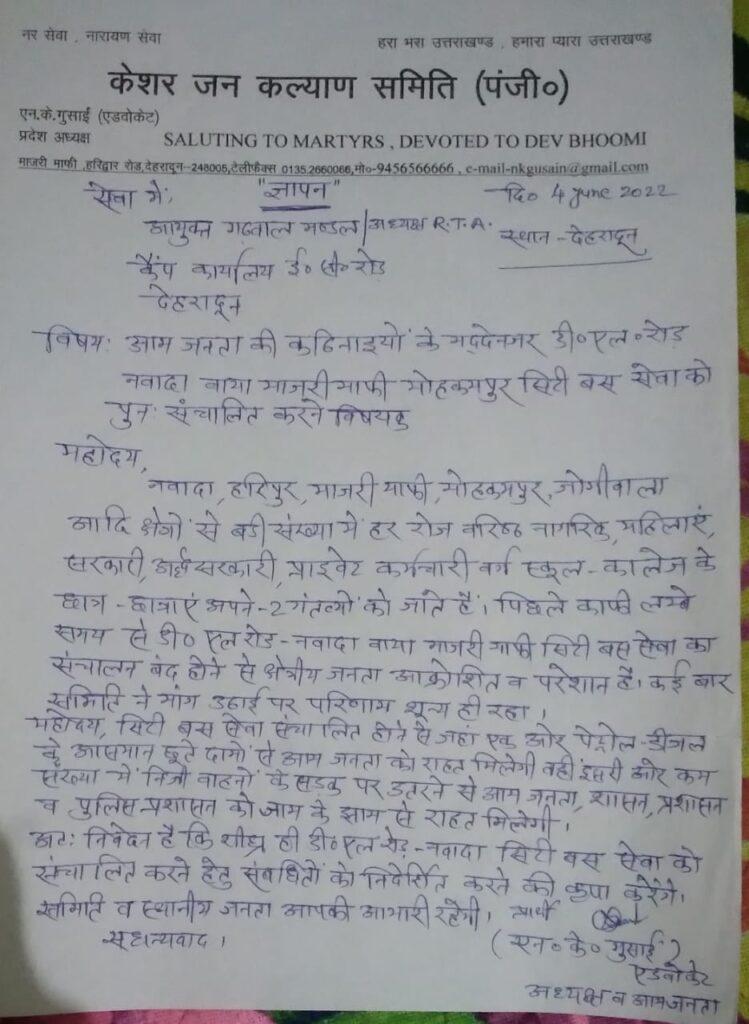 नर सेवा , नारायण सेवा
हरा भरा उत्तराखण्ड , हमारा प्यारा उत्तराखण्ड
केशर जन कल्याण समिति (पंजी०)
एन.के.गुसाई (एडवोकेट)
प्रदेश अध्यक्ष
SALUTING TO MARTYRS , DEVOTED TO DEV BHOOMI
माजरी माफी ,हरिद्वार रोड,देहरादून--248005,टेलीफैक्स 0135.2660066,मो०-9456566666 , e-mail-nkgusain@gmail.com
सेवा में,
"ज्ञापन"
दि० 4 June 2022
आयुक्त गढवाल मण्डल/अध्यक्ष R.T.A.
स्थान - देहरादून
कैंप कार्यालय ई० सी० रोड
देहरादून
विषय: आम जनता की कठिनाइयों के मद्देनजर डी०एल०रोड
नवादा वाया माजरी माफी मोहकमपुर सिटी बस सेवा को
पुन: संचालित करने विषयक
महोदय,
नवादा, हरिपुर, माजरी माफी, मोहकमपुर, जोगीवाला
आदि क्षेत्रों से बडी संख्या में हर रोज वरिष्ठ नागरिक, महिलाएं,
सरकारी, अर्द्धसरकारी, प्राइवेट कर्मचारी वर्ग स्कूल-कालेज के
छात्र-छात्राएं अपने-2 गंतव्यों को जाते हैं। पिछले काफी लम्बे
समय से डी० एल रोड-नवादा वाया माजरी माफी सिटी बस सेवा का
संचालन बंद होने से क्षेत्रीय जनता आक्रोशित व परेशान है। कई बार
समिति ने मांग उठाई पर परिणाम शून्य ही रहा।
महोदय, सिटी बस सेवा संचालित होने से जहां एक ओर पेट्रोल-डीजल
के आसमान छूते दामों से आम जनता को राहत मिलेगी वहीं दूसरी ओर कम
संख्या में निजी वाहनों के सड़क पर उतरने से आम जनता, शासन, प्रशासन
व पुलिस-प्रशासन को जाम के झाम से राहत मिलेगी।
अत: निवेदन है कि शीघ्र ही डी०एल-रोड़-नवादा सिटी बस सेवा को
संचालित करने हेतु संबंधितों को निर्देशित करने की कृपा करेंगे।
समिति व स्थानीय जनता आपकी आभारी रहेगी। प्रार्थी
सधन्यवाद।
(एन० के० गुसाई)
एडवोकेट
अध्यक्ष व आमजनता